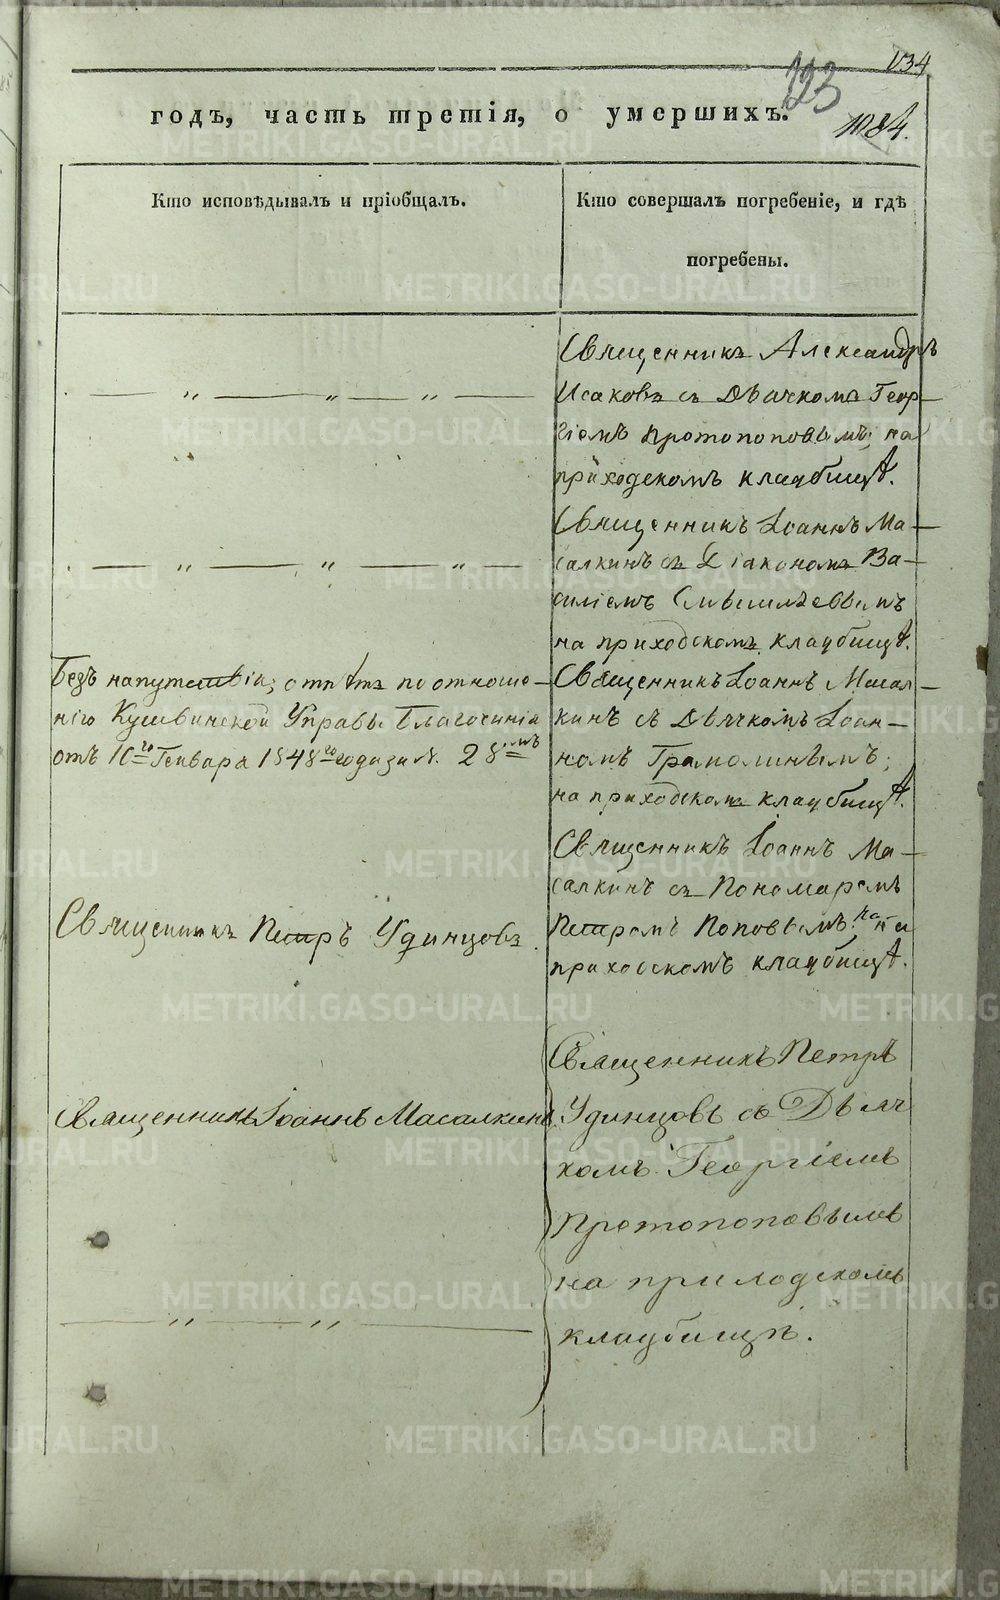 134
123
1084.
годъ, часть третія, о умершихъ.
Кто исповѣдывалъ и пріобщалъ.
Кто совершалъ погребеніе, и гдѣ
погребены.
Священникъ Александръ
Исаковъ съ Дьячкомъ Геор-
гіемъ Протопоповымъ; на
приходскомъ кладбищѣ.
Священникъ Іоаннъ Ма-
салкинъ съ Діакономъ Ва-
силіемъ
на приходскомъ кладбищѣ.
Безъ напутствія; отпѣтъ по отноше-
нію Кушвинской Управы Благочинія
отъ 16го Генваря 1848го года за №. 28мъ
Священникъ Іоаннъ Масал-
кинъ съ Дьячкомъ Іоан-
номъ Грамолинымъ;
на приходскомъ кладбищѣ.
Священникъ Петръ Удинцовъ.
Священникъ Іоаннъ Ма-
салкинъ съ Пономаремъ
Петромъ Поповымъ; на
приходскомъ кладбищѣ.
Священникъ Іоаннъ Масалкинъ.
Священникъ Петръ
Удинцовъ съ Дьяч
комъ Георгіемъ
Протопоповымъ
на приходскомъ
кладбищѣ.
METRIKI.GASO-URAL.RU